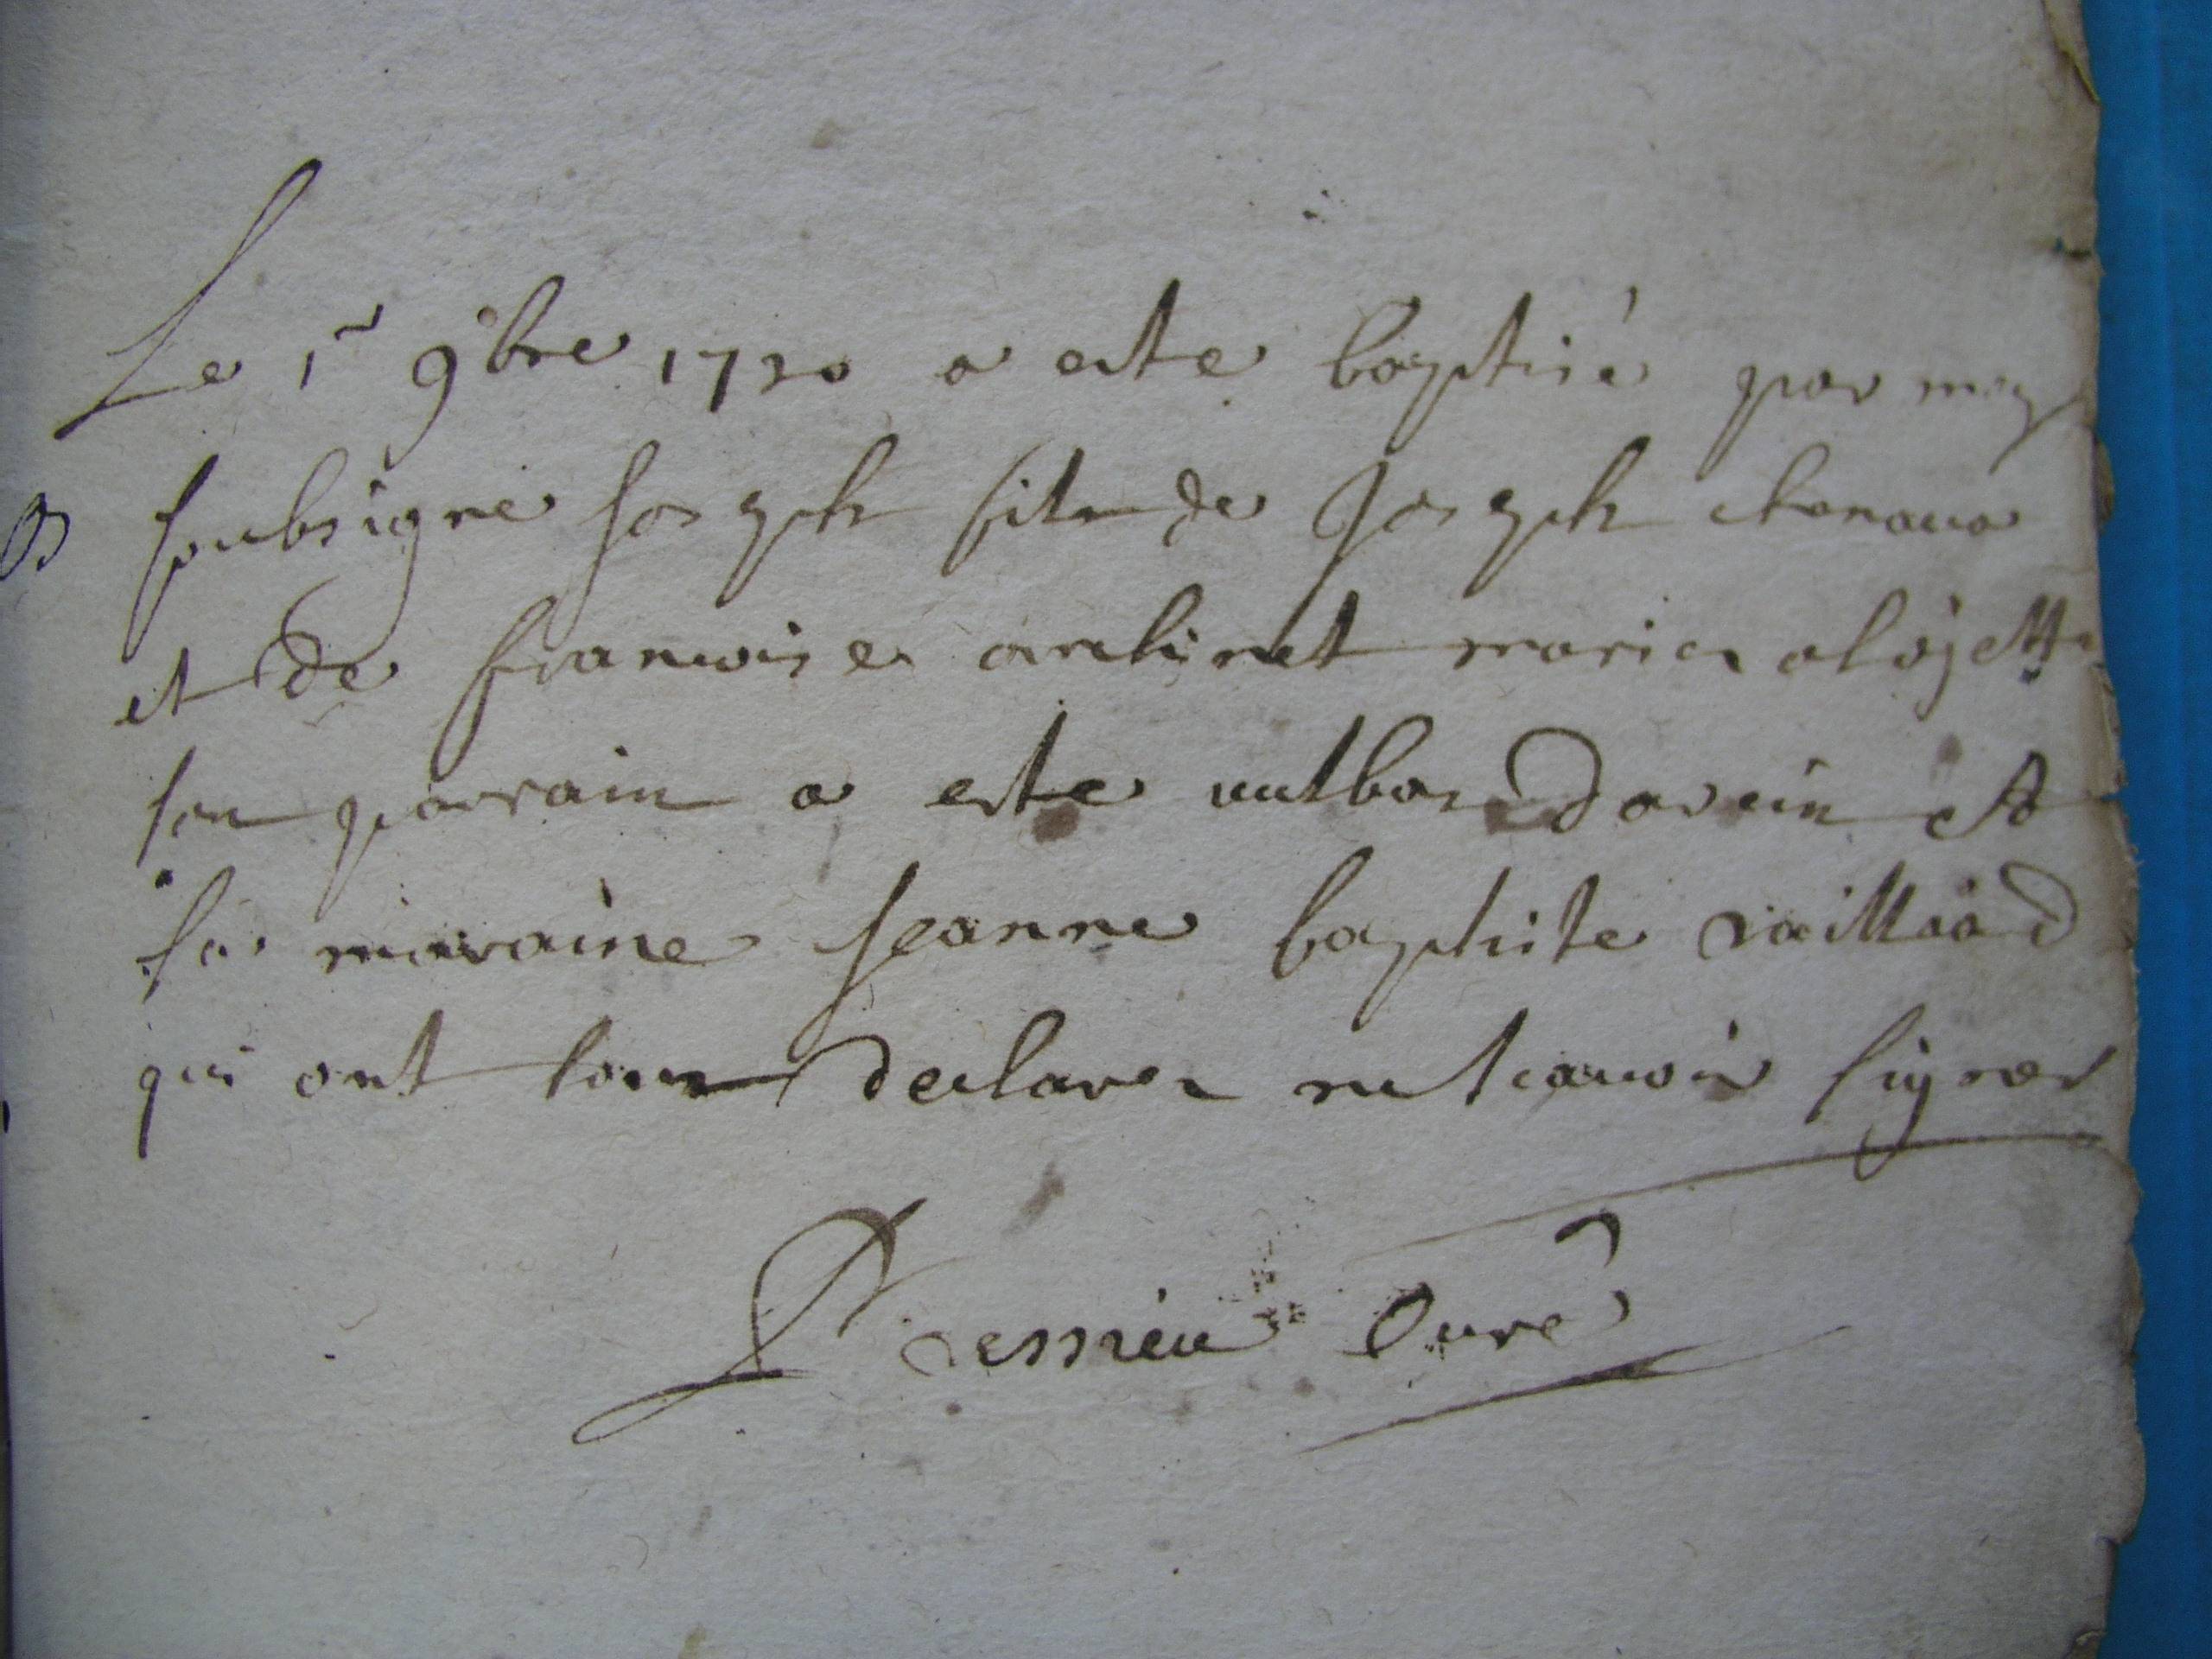 Le 1r 9bre 1720 a este baptisé par moy
B soubsigne Joseph fils de Joseph chenava
et de francoise mariez
son parrain a este davein et
sa maraine Jeanne baptiste vaillad
qui ont tous declarez ne scavoir signer
Vessieu Curé